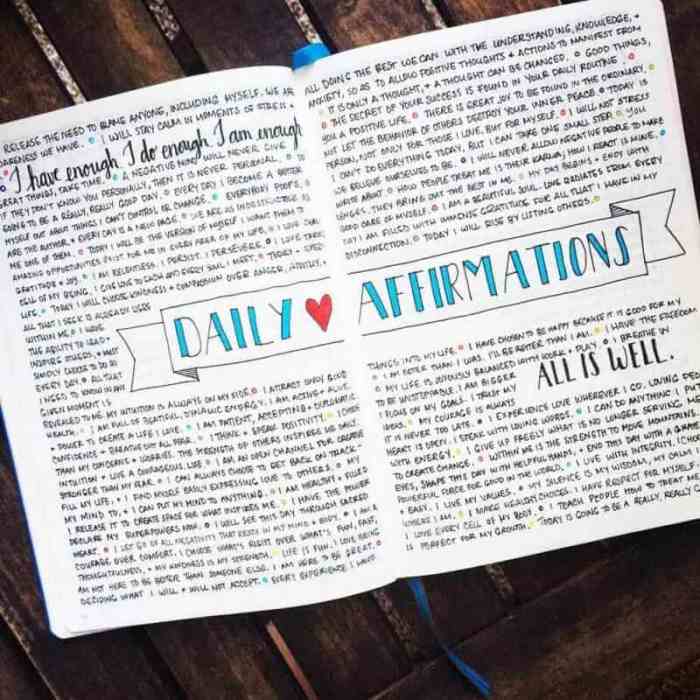 RELEASE THE NEED TO BLAME ANYONE, INCLUDING MYSELF. WE ARE
DARKNESS WE HAVE. I WILL STAY CALM IN MOMENTS OF STRESS +
I have enough, I do enough, I am enough
GREAT THINGS TAKE TIME. A NEGATIVE MIND WILL NEVER GIVE
IF THEY DON'T KNOW YOU PERSONALLY, THEN IT IS NEVER PERSONAL. TO
GOING TO BE A REALLY, REALLY GOOD DAY. EVERY DAY I BECOME A BETTER
MYSELF OUT ABOUT THINGS I CAN'T CONTROL OR CHANGE. EVERYBODY POOPS.
ARE THE AUTHOR. EVERY DAY IS A NEW PAGE. WE ARE AS INDESTRUCTIBLE AS
ME ONE OF THEM. TODAY I WILL BE THE VERSION OF MYSELF I WANT THEM TO
AMAZING OPPORTUNITIES EXIST FOR ME IN EVERY AREA OF MY LIFE. I LOVE
GRATITUDE + JOY. I AM RELENTLESS. I PERSIST. I PERSEVERE. I LOVE
CELL OF MY BEING. I GIVE LOVE TO EACH AND EVERY SOUL I MEET. TODAY I
LIFE. TODAY I WILL CHOOSE KINDNESS + COMPASSION OVER ANGER,
ALL THAT I SEEK IS ALREADY HERE
WITHIN ME. I HAVE
THE ABILITY TO LEAD +
INSPIRE OTHERS. I MUST
SIMPLY CHOOSE TO DO SO
EVERY DAY. ALL THAT
I NEED TO KNOW IN ANY
GIVEN MOMENT IS
DAILY ❤ AFFIRMATIONS
REVEALED TO ME. MY INTUITION IS ALWAYS ON MY SIDE. I ATTRACT ONLY GOOD
HEALTH. I AM FULL OF BEAUTIFUL, DYNAMIC ENERGY. I AM ACTIVE + ALIVE.
POWER TO CREATE A LIFE I LOVE. I AM PATIENT, ACCEPTING + DIPLOMATIC
CONFIDENCE + BREATHE OUT ALL FEAR. I THINK + SPEAK POSITIVELY. I CHOOSE
THAN MY OPINIONS + WORRIES. THE STRENGTH OF OTHERS INSPIRES ME DAILY.
INTUITION + LIVE A COURAGEOUS LIFE. I AM AN OPEN CHANNEL FOR CREATIVE
STRONGER THAN MY FEAR. I CAN ALWAYS CHOOSE TO GET BACK ON TRACK
FILL MY LIFE. I FIND MYSELF EASILY EXPRESSING LOVE TO OTHERS. MY
MY MIND TO, I CAN PUT MY MIND TO ANYTHING. I AM HEALTHY + FILLED
I RELEASE IT TO CREATE SPACE FOR WHAT INSPIRES ME. I HAVE THE POWER
DECLARE MY SUPERPOWERS NOW. I WILL SEE THIS DAY THROUGH SACRED
HEART. I LET GO OF ALL NEGATIVITY THAT RESTS IN MY MIND + BODY. I AM A
COURAGE OVER COMFORT. I CHOOSE WHAT'S RIGHT OVER WHAT'S FUN, FAST,
THOUGHTFULNESS. MY KINDNESS IS MY STRENGTH. LIFE IS FUN. I LOVE BEING
AM NOT HERE TO BE BETTER THAN SOMEONE ELSE. I AM HERE TO BE GREAT.
DECIDING WHAT I WILL + WILL NOT ACCEPT. EVERY EXPERIENCE I HAVE
ALL DOING THE BEST WE CAN WITH THE UNDERSTANDING, KNOWLEDGE, +
ANXIETY, SO AS TO ALLOW POSITIVE THOUGHTS + ACTIONS TO MANIFEST FROM
IT IS ONLY A THOUGHT, + A THOUGHT CAN BE CHANGED. GOOD THINGS,
YOU A POSITIVE LIFE. THE SECRET OF YOUR SUCCESS IS FOUND IN YOUR DAILY ROUTINE.
NOT LET THE BEHAVIOR OF OTHERS DESTROY YOUR INNER PEACE. TODAY IS
PERSON, NOT ONLY FOR THOSE I LOVE, BUT FOR MYSELF. I WILL NOT STRESS
I CAN'T DO EVERYTHING TODAY, BUT I CAN TAKE ONE SMALL STEP. YOU
WE BELIEVE OURSELVES TO BE. I WILL NEVER ALLOW NEGATIVE PEOPLE TO MAKE
WRITE ABOUT. HOW PEOPLE TREAT ME IS THEIR KARMA; HOW I REACT IS MINE.
THEY BRING OUT THE BEST IN ME. MY DAY BEGINS + ENDS WITH
GOOD CARE OF MYSELF. I AM A BEAUTIFUL SOUL. LOVE RADIATES FROM EVERY
I AM FILLED WITH IMMENSE GRATITUDE FOR ALL THAT I HAVE IN MY
DISCONNECTION. TODAY I WILL RISE BY LIFTING OTHERS.
THINGS INTO MY LIFE. I HAVE CHOSEN TO BE HAPPY BECAUSE IT IS GOOD FOR MY
I AM BETTER THAN I WAS. I'LL BE BETTER THAN I AM. I HAVE THE FREEDOM +
MY LIFE IS JOYOUSLY BALANCED WITH WORK + PLAY. I BREATHE IN
TO BE UNSTOPPABLE. I AM BIGGER
ALL IS WELL.
I FOCUS ON MY GOALS. I TRUST MY
IDEAS. MY COURAGE IS ALWAYS
IT IS NEVER TOO LATE. I EXPERIENCE LOVE WHEREVER I GO. LOVING
HEART IS OPEN. I SPEAK WITH LOVING WORDS. I CAN DO ANYTHING I PUT
WITH ENERGY. I GIVE UP FREELY WHAT IS NO LONGER SERVING ME.
TO CREATE CHANGE. WITHIN ME IS THE STRENGTH TO MOVE MOUNTAINS.
EYES, SHAPE THIS DAY WITH HELPFUL HANDS, + END THIS DAY WITH A
POWERFUL FORCE FOR GOOD IN THE WORLD. I LIVE WITH INTEGRITY. I CHOOSE
+ EASY. I LIVE MY VALUES. MY SILENCE IS MY WISDOM, MY CALM
WHERE I AM. I MAKE HEALTHY CHOICES. I HAVE RESPECT FOR MYSELF.
I LOVE EVERY CELL OF MY BODY. I TEACH PEOPLE HOW TO TREAT ME
IS PERFECT FOR MY GROWTH. TODAY IS GOING TO BE A REALLY, REALLY